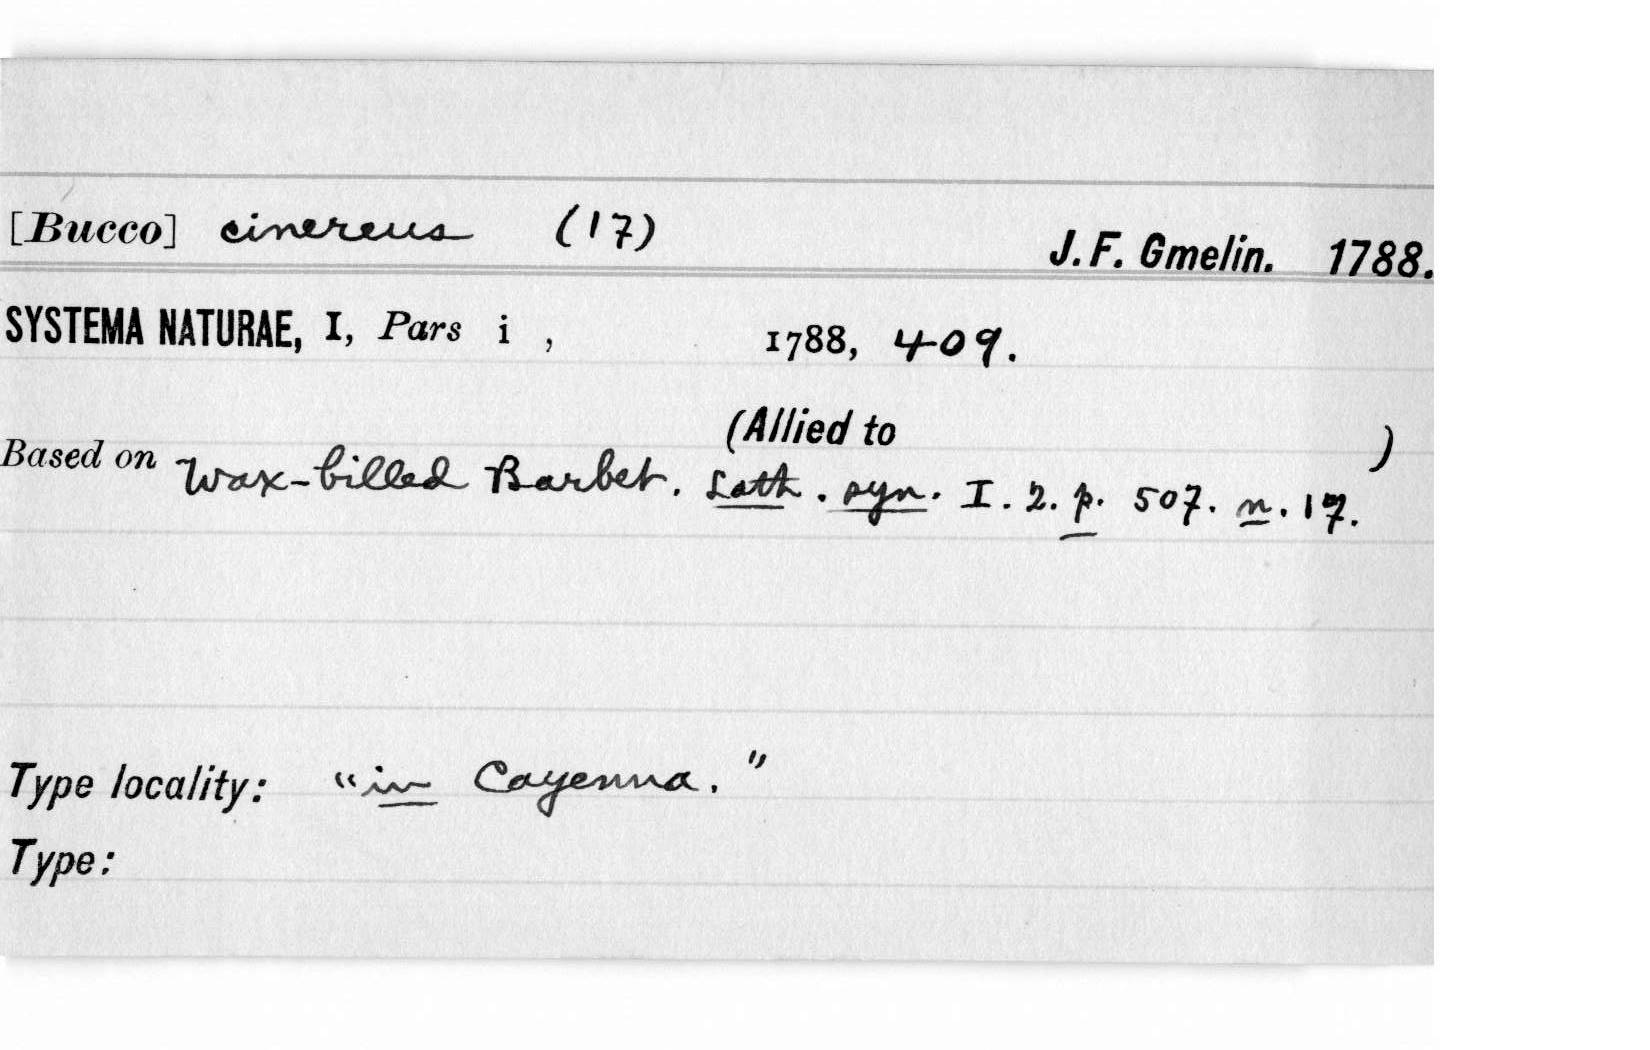 [Bucco] cinereus (17) J. F. Gmelin. 1788.
SYSTEMA NATURAE, I, Pars i , 1788, 409.
(Allied to )
Based on Wax-billed Barbet. Lath. syn. I. 2. p. 507. n. 17.
Type locality: "in Cayenna."
Type: